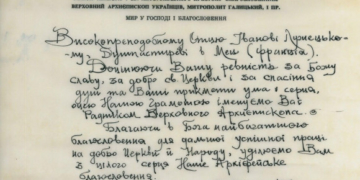 ВЕРХОВНИЙ АРХИЄПИСКОП УКРАЇНЦІВ, МИТРОПОЛИТ ГАЛИЦЬКИЙ, І ПР.
МИР У ГОСПОДІ І БЛАГОСЛОВЕННЯ
Високопреподобному Отцю Іванові
му, Душпастиреві в Мец (Франція).
Оцінюючи Вашу ревність за Божу
славу, за добро св. Церкви і за спасіння
душ та Ваші прикмети ума і серця,
цією Нашою Грамотою іменуємо Вас
Радником Верховного Архиєпископа.
Благаючи в Бога найбагатшого
благословення для дальшої успішної праці
на добро Церкви й Народу, уділяємо Вам
з цілого серця Наше Архієрейське
благословення.